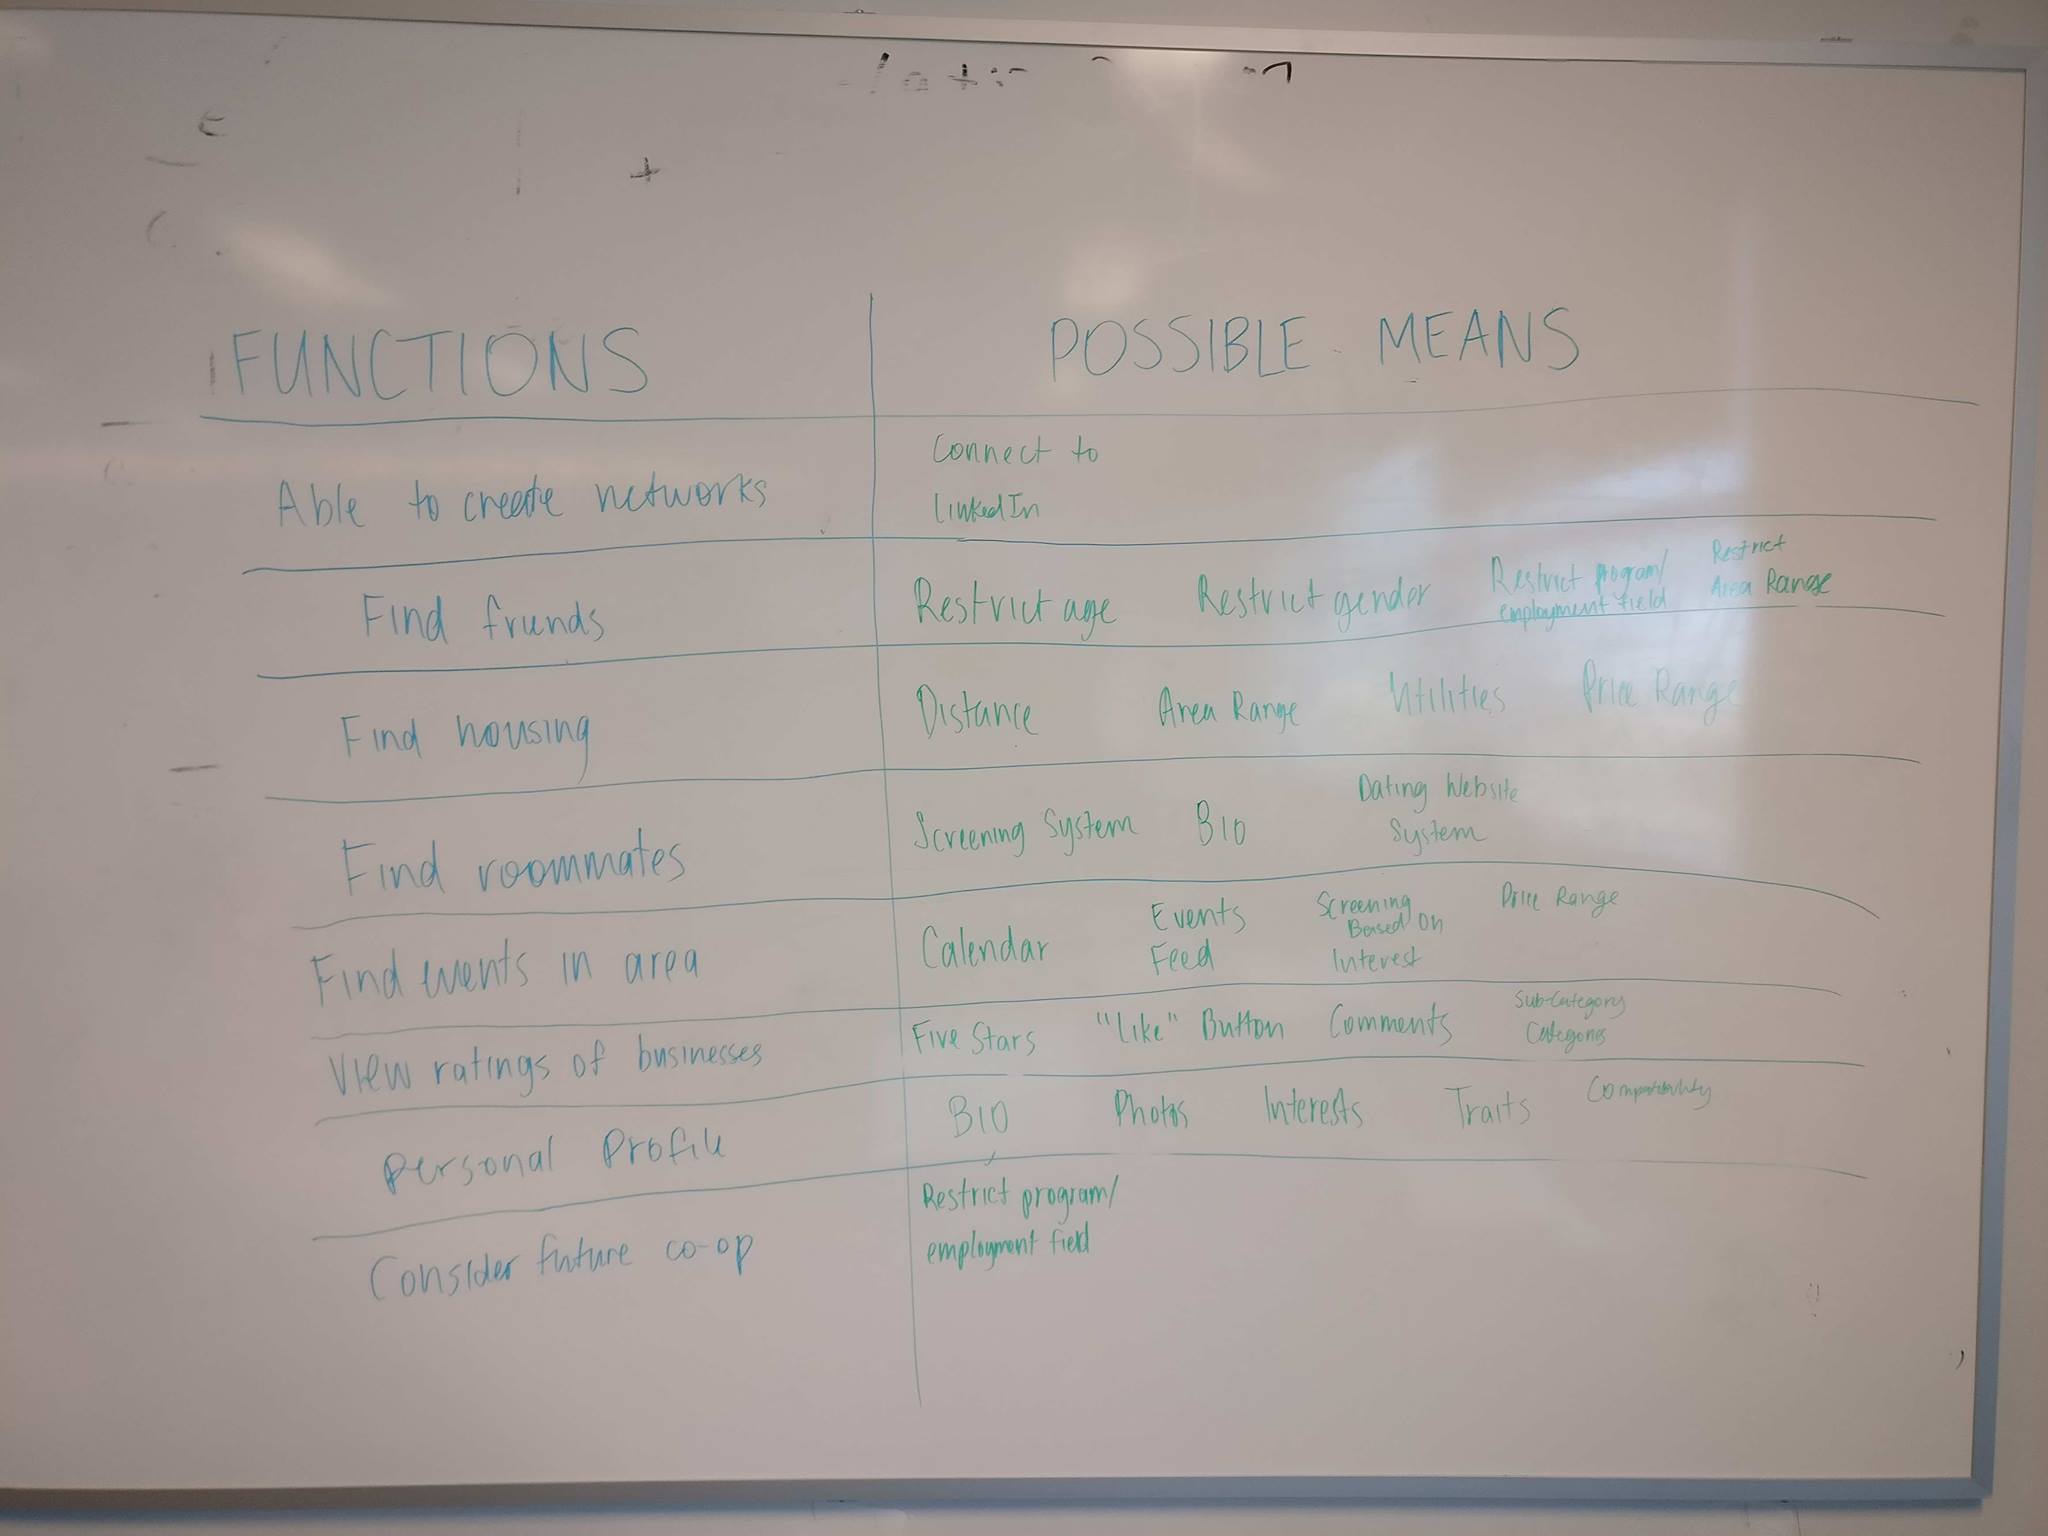 FUNCTIONS
POSSIBLE MEANS
Able to create networks
Connect to
LinkedIn
Find friends
Restrict age
Restrict gender
Restrict program/
employment field
Restrict
Area Range
Find housing
Distance
Area Range
Utilities
Price Range
Find roommates
Screening System
Bio
Dating Website
System
Find events in area
Calendar
Events
Feed
Screening
Based On
Interest
Price Range
View ratings of businesses
Five Stars
"Like" Button
Comments
Sub-Category
Categories
Personal Profile
Bio
Photos
Interests
Traits
Compatability
Consider future co-op
Restrict program/
employment field